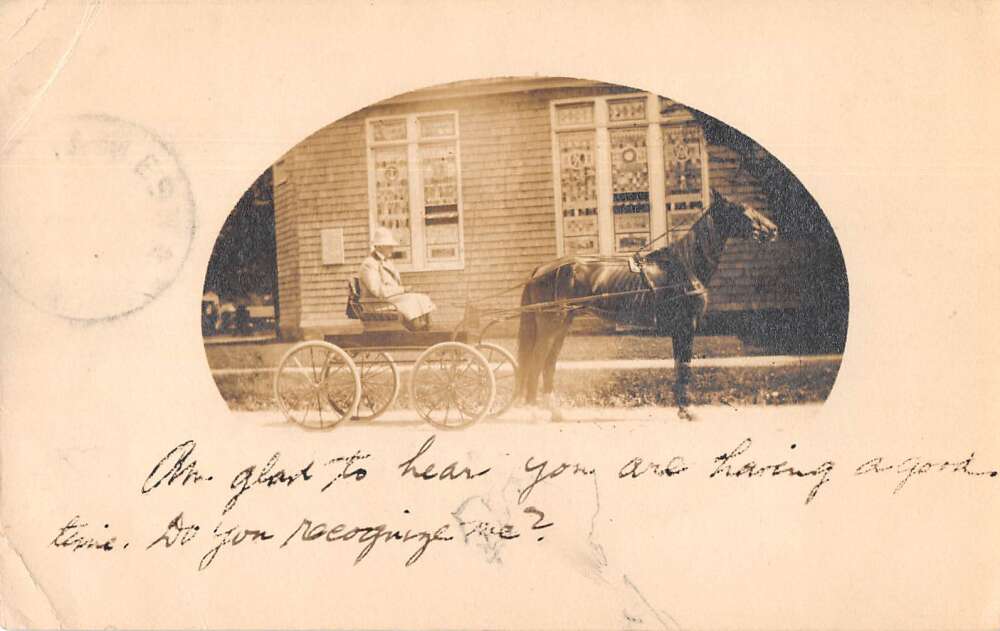 Am glad to hear you are having a good
time. Do you recognize me?